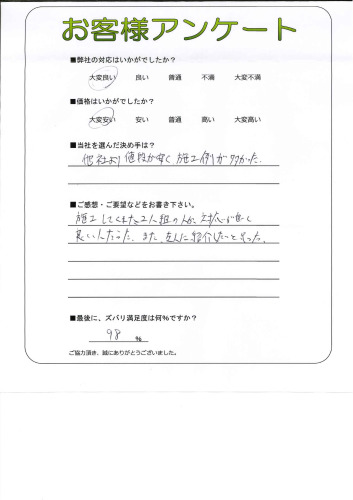 お客様アンケート
■弊社の対応はいかがでしたか？
大変良い 良い 普通 不満 大変不満
■価格はいかがでしたか？
大変安い 安い 普通 高い 大変高い
■当社を選んだ決め手は？
他社より値段が安く施工例が多かった。
■ご感想・ご要望などをお書き下さい。
施工してくれた2人組の人が、対応が良く
良い人だった。また、友人に紹介したいと思った。
■最後に、ズバリ満足度は何%ですか？
98 %
ご協力頂き、誠にありがとうございました。